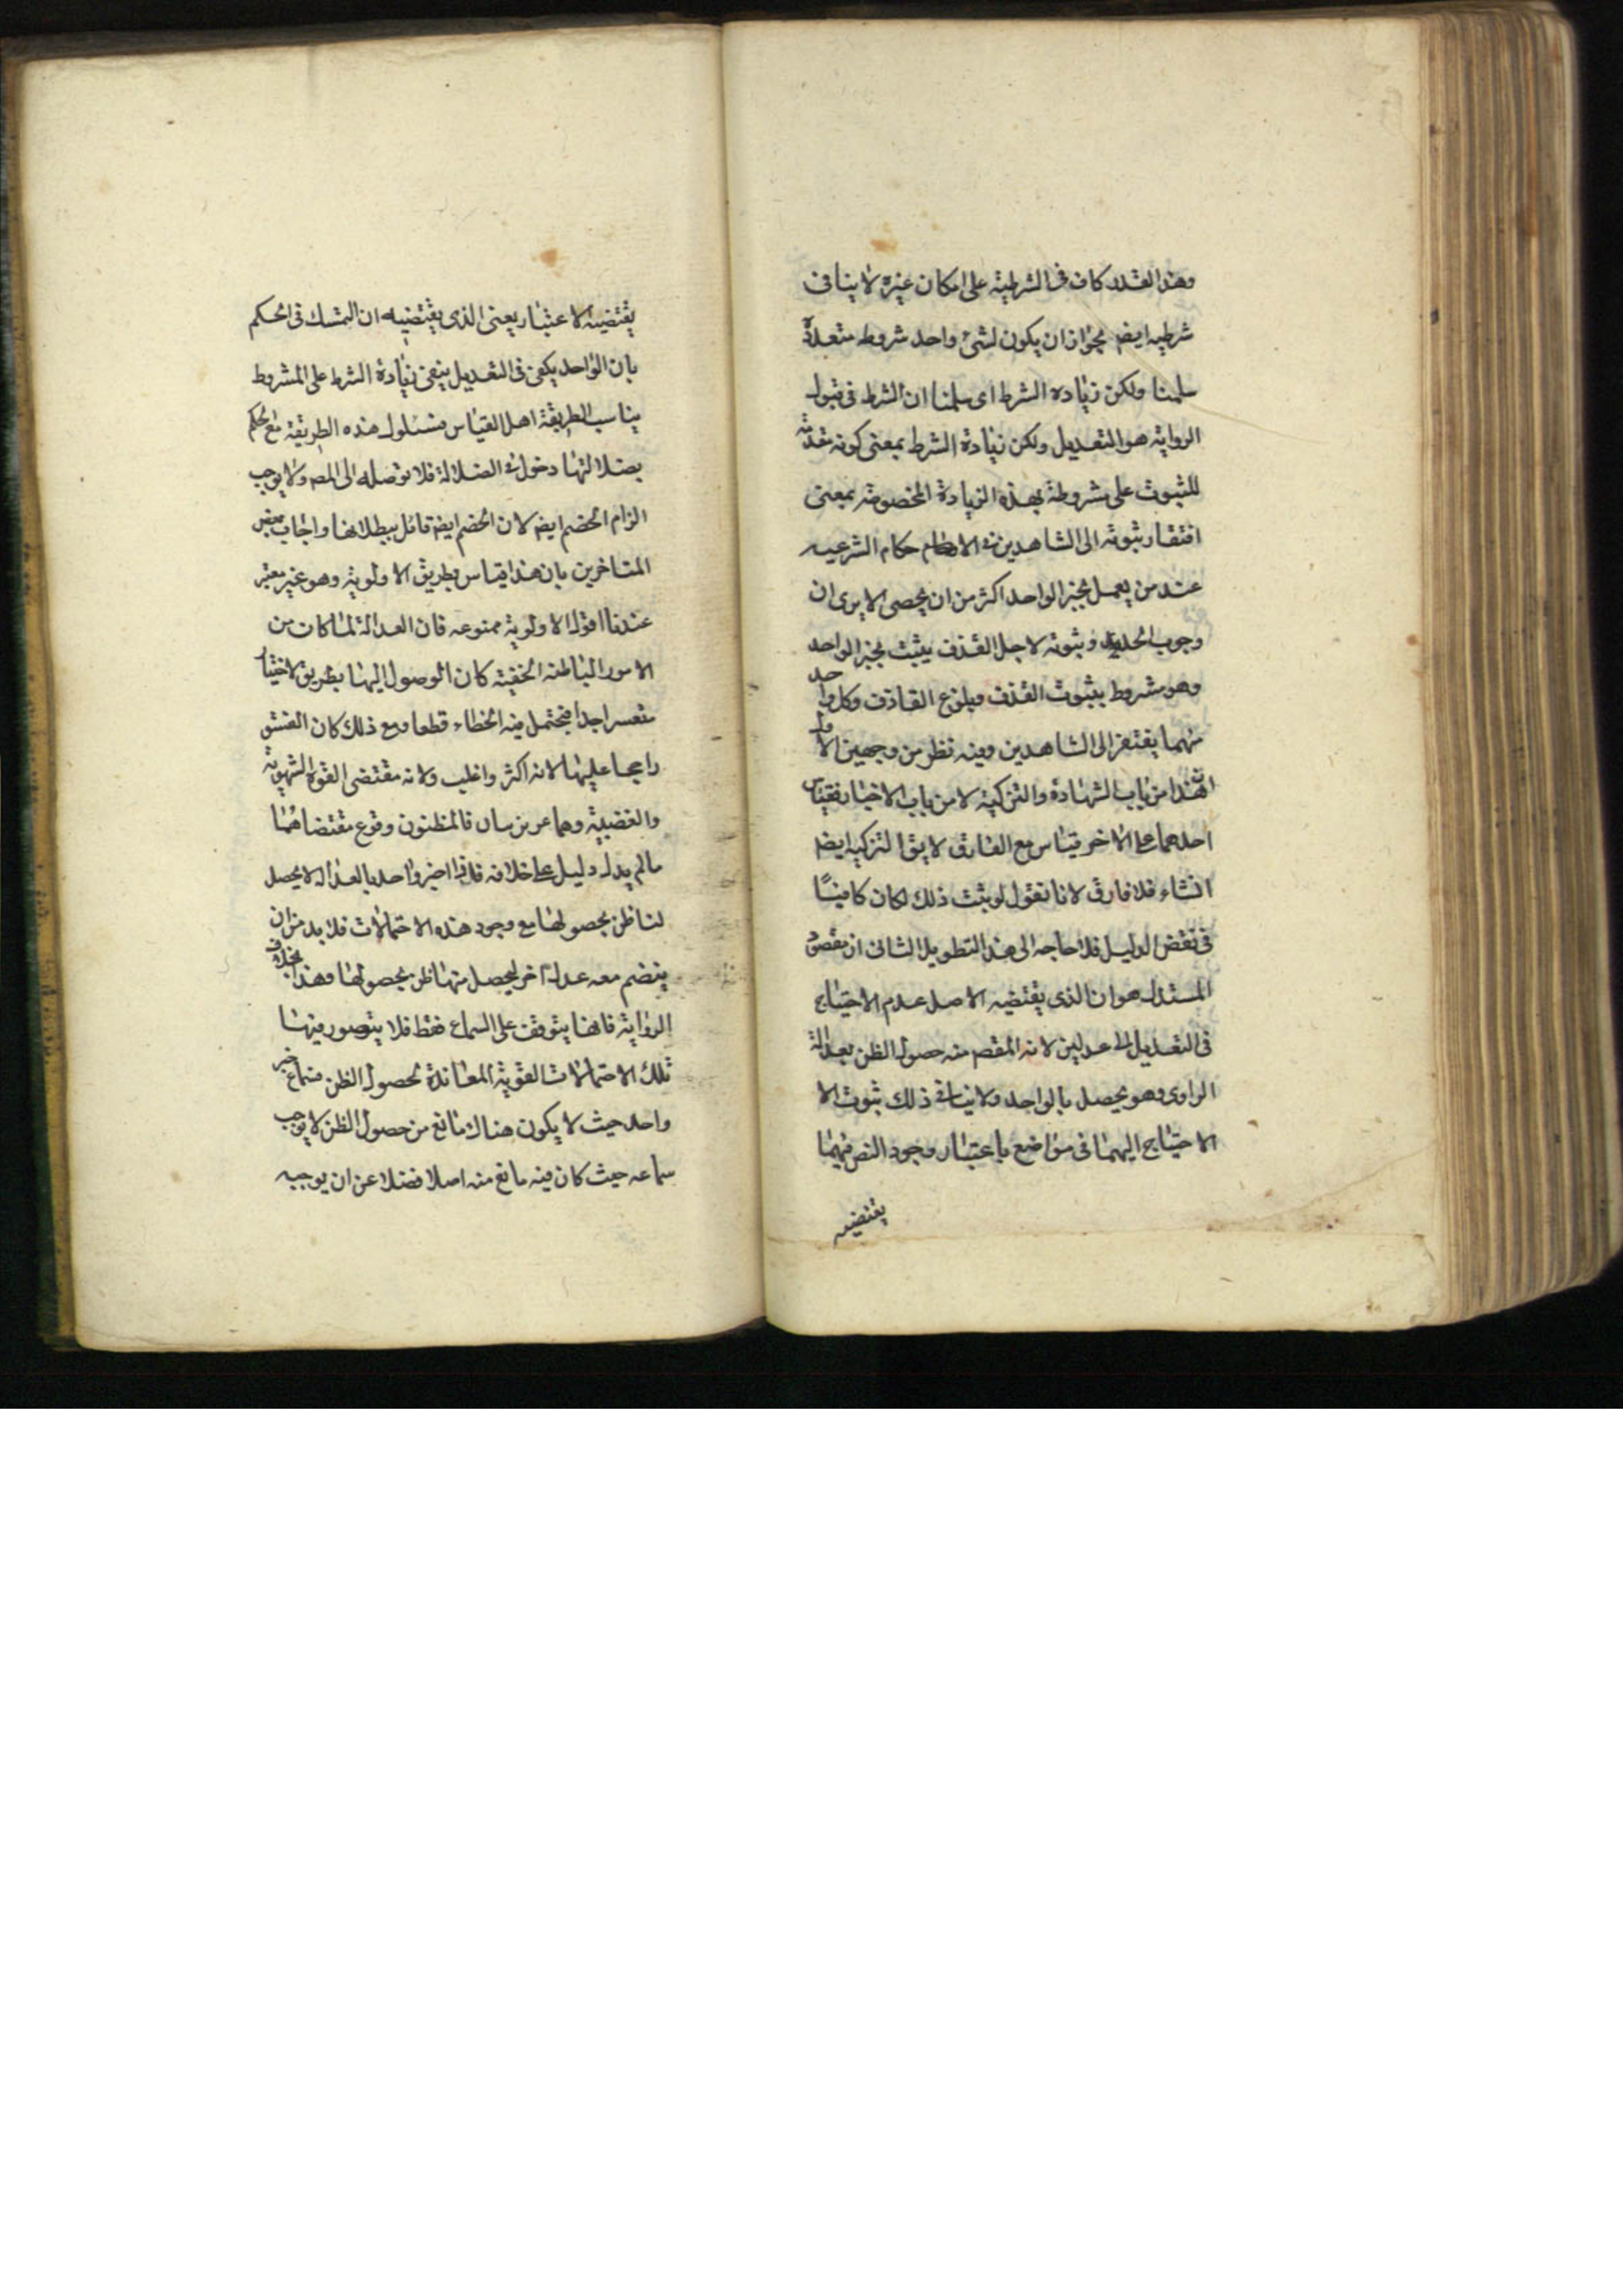 وهذا القدر كاف في الشرطية على امكان غيره لا ينافي
شرطيه ايضم بجواز ان يكون لشئ واحد شروط متعددة
سلمنا ولكن زيادة الشرط اى سلمنا ان الشرط في قبول
الرواية هو التعديل ولكن زيادة الشرط بمعنى كونه
للثبوت على مشروطة بهذه الزيادة المخصوصة بمعنى
افتقار ثبوته الى الشاهدين في الا حكام الشرعيه
عند من يعمل بخبر الواحد اكثر من ان يحصى الا يرى ان
وجوب الحد وثبوته لاجل القذف يثبت بخبر الواحد
وهو مشروط بثبوت القذف وبلوغ القاذف وكل واحد
منهما يفتقر الى الشاهدين وفيه نظر من وجهين الاول
ان هذا من باب الشهادة والتزكية لا من باب الاخبار فقياس
احدهما على الاخر قياس مع الفارق لا يق التزكيه ايضم
انشاء فلا فارق لانا نقول لو ثبت ذلك لكان كافيًا
في نقض الدليل فلا حاجه الى هذا التطويل الثانى ان مقصود
المستدل هو ان الذى يقتضيه الاصل عدم الاحتياج
في التعديل الى عدلين لانه المقصم منه حصول الظن بعدالة
الراوى وهو يحصل بالواحد ولا ينافى ذلك ثبوت الا
الاحتياج اليهما في مواضع باعتبار وجود النص فيهما
يقتضيه
يقتضيه الاعتبار يعنى الذى يقتضيه ان التمسك في الحكم
بان الواحد يكفى في التعديل بنفى زيادة الشرط على المشروط
يناسب الطريقة اهل القياس فسلوك هذه الطريقة مع الحكم
بضلالتها دخول في الضلالة فلا توصله الى المصم ولا يوجب
الزام الخصم ايضم لان الخصم ايضم قائل ببطلانها واجاب بعض
المتاخرين بان هذا قياس بطريق الاولوية وهو غير معتبر
عندنا اقول الاولوية ممنوعه فان العدالة لما كان من
الامور الباطنه الخفية كان الوصول اليها بطريق الاختبار
متعسرا جدا فيحتمل فيه الخطاء قطعا ومع ذلك كان الفسق
راجحا عليها لانه اكثر واغلب ولانه مقتضى القوة الشهوية
والغضبية وهما غريزيتان فالمظنون وقوع مقتضاهما
مالم يدل دليل على خلافه فاذا اخبر واحد بالعدالة لا يحصل
لنا ظن بحصولها مع وجود هذه الاحتمالات فلا بد من ان
ينضم معه عدل آخر ليحصل منها ظن بحصولها وهذا بخلاف
الرواية فانها يتوقف على السماع فقط فلا يتصور فيها
تلك الاحتمالات القوية المعاندة لحصول الظن فسماع خبر
واحد حيث لا يكون هناك مانع من حصول الظن لا يوجب
سماعه حيث كان فيه مانع منه اصلا فضلا عن ان يوجبه